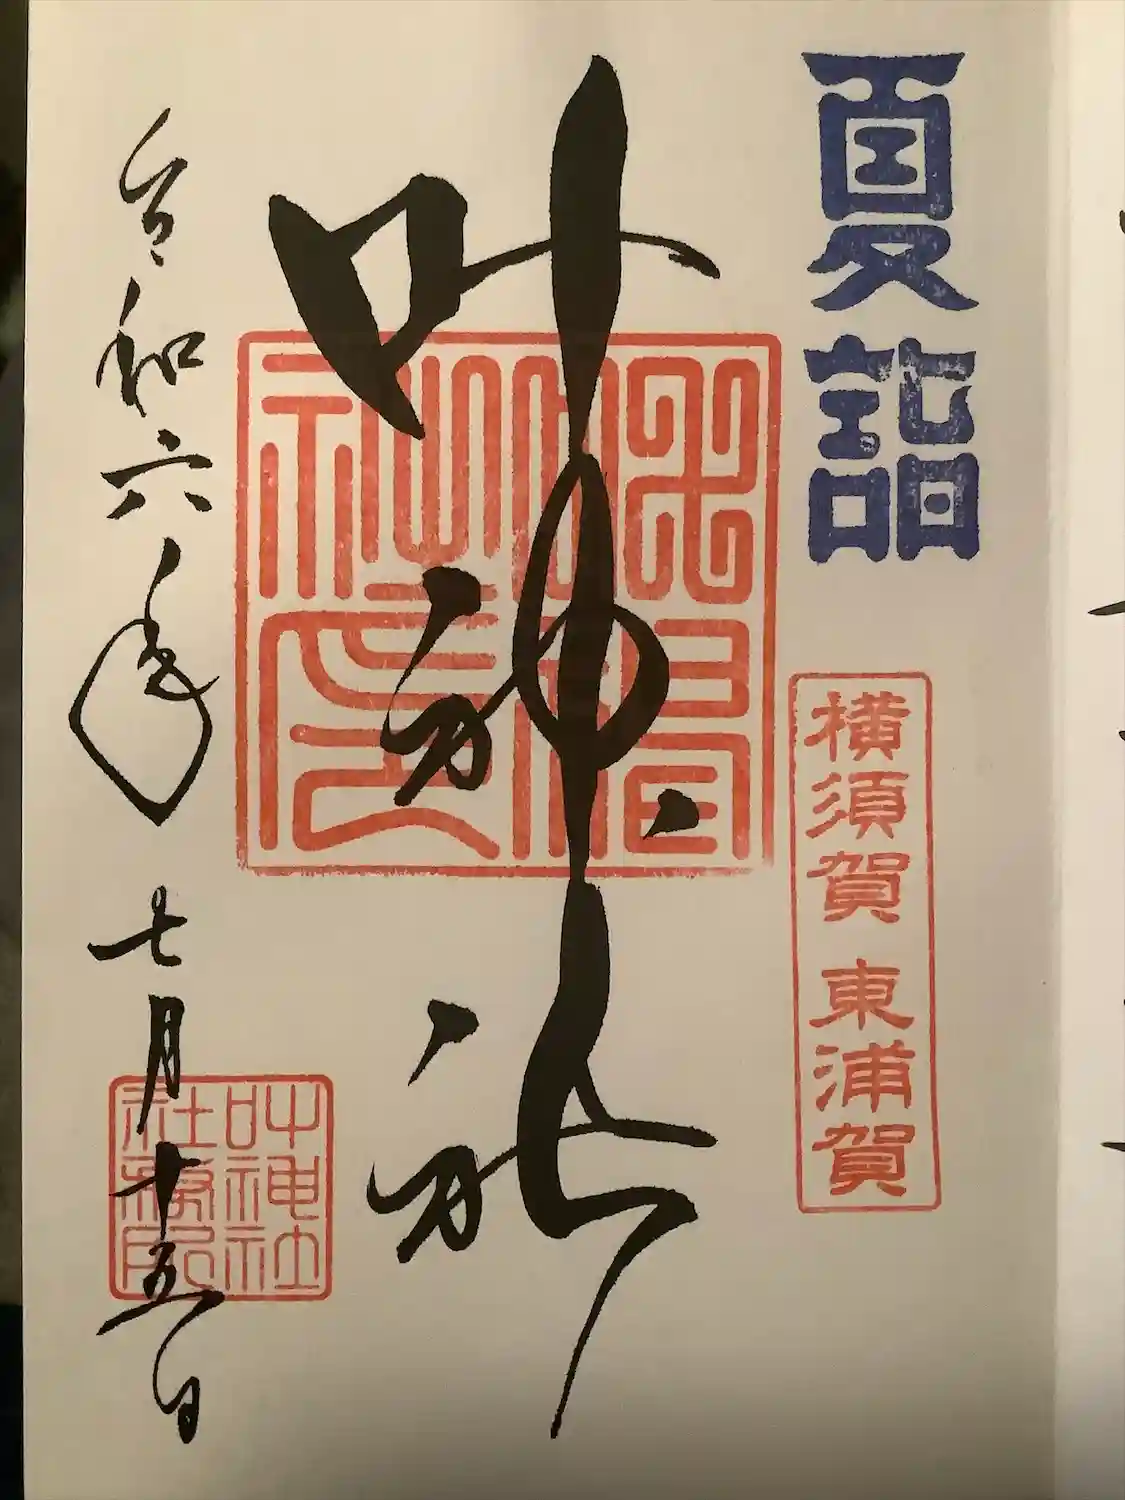 夏詣
横須賀 東浦賀
叶神社
令和六年 七月十五日
叶神社
社務所